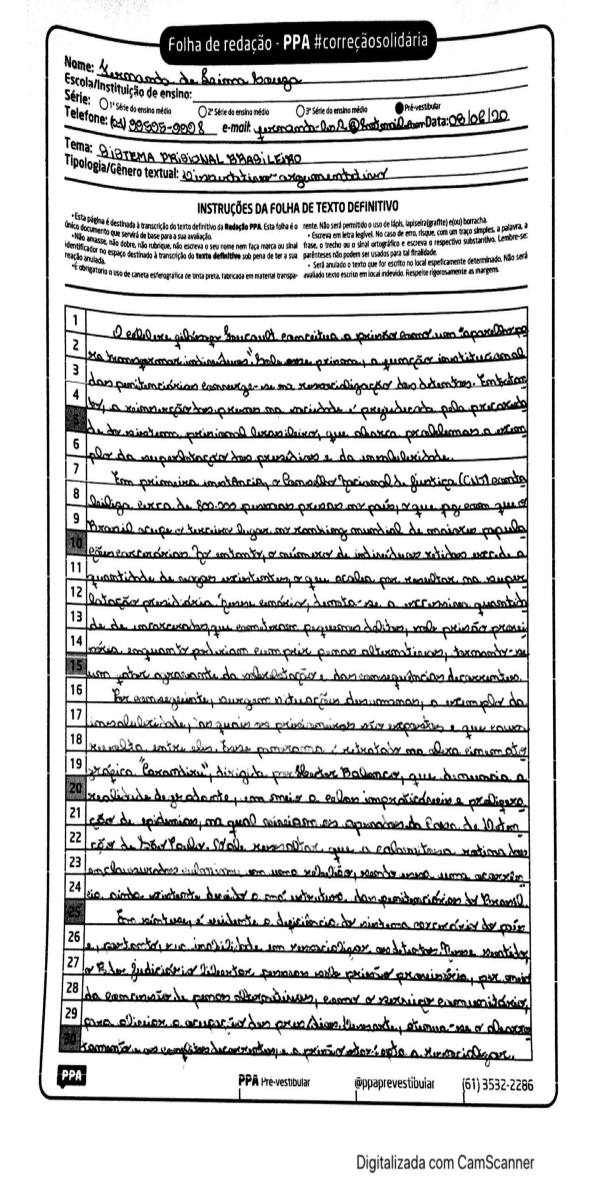 Folha de redação - PPA #correçãosolidária
Nome: Fernanda de Lima Souza
Escola/Instituição de ensino:
Série: 1ª Série do ensino médio 2ª Série do ensino médio 3ª Série do ensino médio Pré-vestibular
Telefone: (61) e-mail: Data: 08/08/20
Tema: SISTEMA PRISIONAL BRASILEIRO
Tipologia/Gênero textual: Dissertativo-argumentativo
INSTRUÇÕES DA FOLHA DE TEXTO DEFINITIVO
•Esta página é destinada à transcrição do texto definitivo da Redação PPA. Esta folha é o
único documento que servirá de base para a sua avaliação.
•Não amasse, não dobre, não rubrique, não escreva o seu nome nem faça marca ou sinal
identificador no espaço destinado à transcrição do texto definitivo sob pena de ter a sua
reação anulada.
•É obrigatório o uso de caneta esferográfica de tinta preta, fabricada em material transpa-
rente. Não será permitido o uso de lápis, lapiseira(grafite) e(ou) borracha.
• Escreva em letra legível. No caso de erro, risque, com um traço simples, a palavra, a
frase, o trecho ou o sinal ortográfico e escreva o respectivo substantivo. Lembre-se:
parênteses não podem ser usados para tal finalidade.
• Será anulado o texto que for escrito no local espeficamente determinado. Não será
avaliado texto escrito em local indevido. Respeite rigorosamente as margens.
1 O célebre filósofo Foucault conceitua a prisão como um "aparelho pa
2 ra transformar indivíduos". Sob esse prisma, a função institucional
3 das penitenciárias converge-se na ressocialização dos detentos. Entretan
4 to, a reinserção dos presos na sociedade é prejudicada pela precarieda
5 de do sistema prisional brasileiro, que abarca problemas a exem
6 plo da superlotação dos presídios e da insalubridade.
7 Em primeira instância, o Conselho Nacional de Justiça (CNJ) conta
8 biliza cerca de 800.000 pessoas presas no país, o que faz com que o
9 Brasil ocupe o terceiro lugar no ranking mundial de maiores popula
10 ções carcerárias. No entanto, o número de indivíduos retidos excede a
11 quantidade de vagas existentes, o que acaba por resultar na super
12 lotação presidiária. Nesse cenário, denota-se a excessiva quantida
13 de de encarcerados, que cometeram pequenos delitos, sob prisão provi
14 sória enquanto poderiam cumprir penas alternativas, tornando-se
15 um fator agravante da superlotação e das consequências decorrentes.
16 Por conseguinte, surgem situações desumanas, a exemplo da
17 insalubridade, às quais os prisioneiros são expostos e que causa
18 revolta entre eles. Esse panorama é retratado na obra cinemato
19 gráfica "Carandiru", dirigida por Hector Babenco, que denuncia a
20 realidade degradante, em meio a celas impraticáveis e prolifera
21 ção de epidemias, na qual viviam os apenados da Casa de Deten
22 ção de São Paulo. Vale ressaltar que a calamitosa rotina dos
23 enclausurados culminou em uma rebelião, sendo essa uma ocorrên
24 cia ainda existente devido a má estrutura das penitenciárias do Brasil.
25 Em síntese, é evidente a deficiência do sistema carcerário do país
26 e, portanto, sua inabilidade em ressocializar os detentos. Nesse sentido,
27 o Poder Judiciário libertar pessoas sob prisão provisória, por meio
28 da concessão de penas alternativas, como o serviço comunitário,
29 para aliviar a ocupação dos presídios. Dessarte, atenua-se o abarro
30 tamento e os conflitos decorrentes, e a prisão estará apta a ressocializar.
PPA PPA Pré-vestibular @ppaprevestibular (61) 3532-2286
Digitalizada com CamScanner